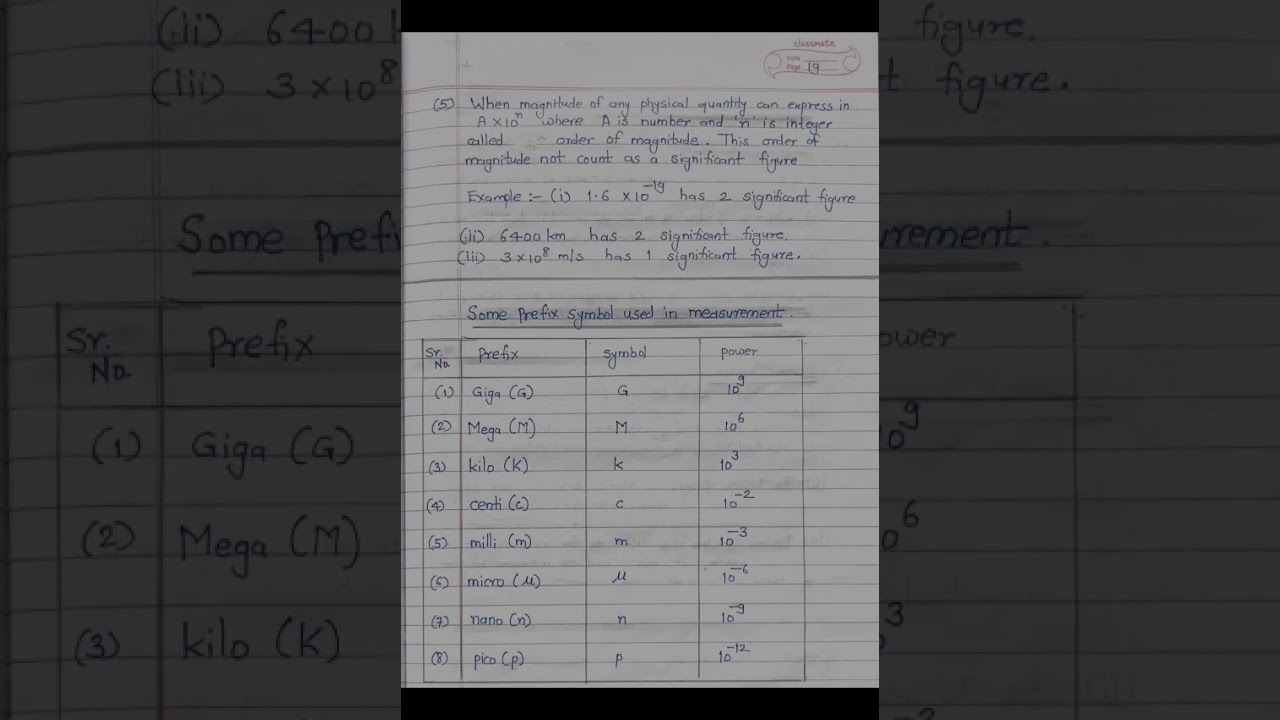 classmate
Date
Page 19
(5) When magnitude of any physical quantity can express in
A×10ⁿ where A is number and 'n' is integer
called order of magnitude. This order of
magnitude not count as a significant figure
Example :- (i) 1.6 ×10⁻¹⁹ has 2 significant figure
(ii) 6400 km has 2 significant figure.
(iii) 3×10⁸ m/s has 1 significant figure.
Some Prefix symbol used in measurement.
Sr. No. Prefix symbol power
(1) Giga (G) G 10⁹
(2) Mega (M) M 10⁶
(3) kilo (k) k 10³
(4) centi (c) c 10⁻²
(5) milli (m) m 10⁻³
(6) micro (μ) μ 10⁻⁶
(7) nano (n) n 10⁻⁹
(8) pico (p) p 10⁻¹²